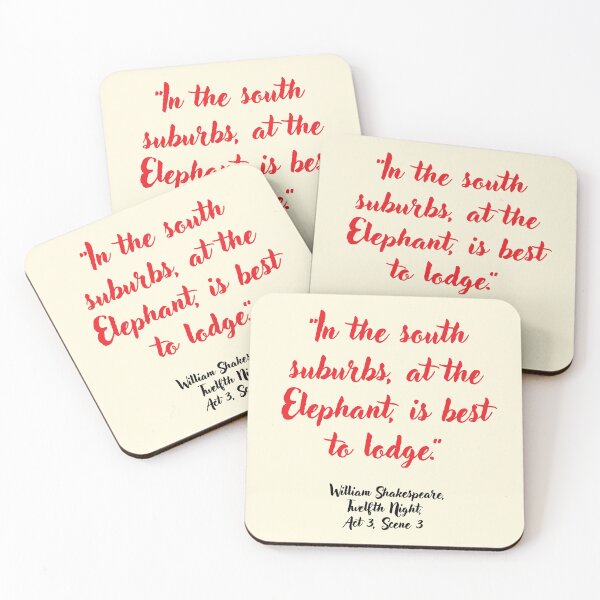 "In the south
suburbs, at the
Elephant, is bes
"In the south
suburbs, at the
Elephant, is best
to lodge."
"In the south
suburbs, at the
Elephant, is best
to lodge."
William Shakes
Twelfth Ni
Act 3, Sc
"In the south
suburbs, at the
Elephant, is best
to lodge."
William Shakespeare,
Twelfth Night,
Act 3, Scene 3